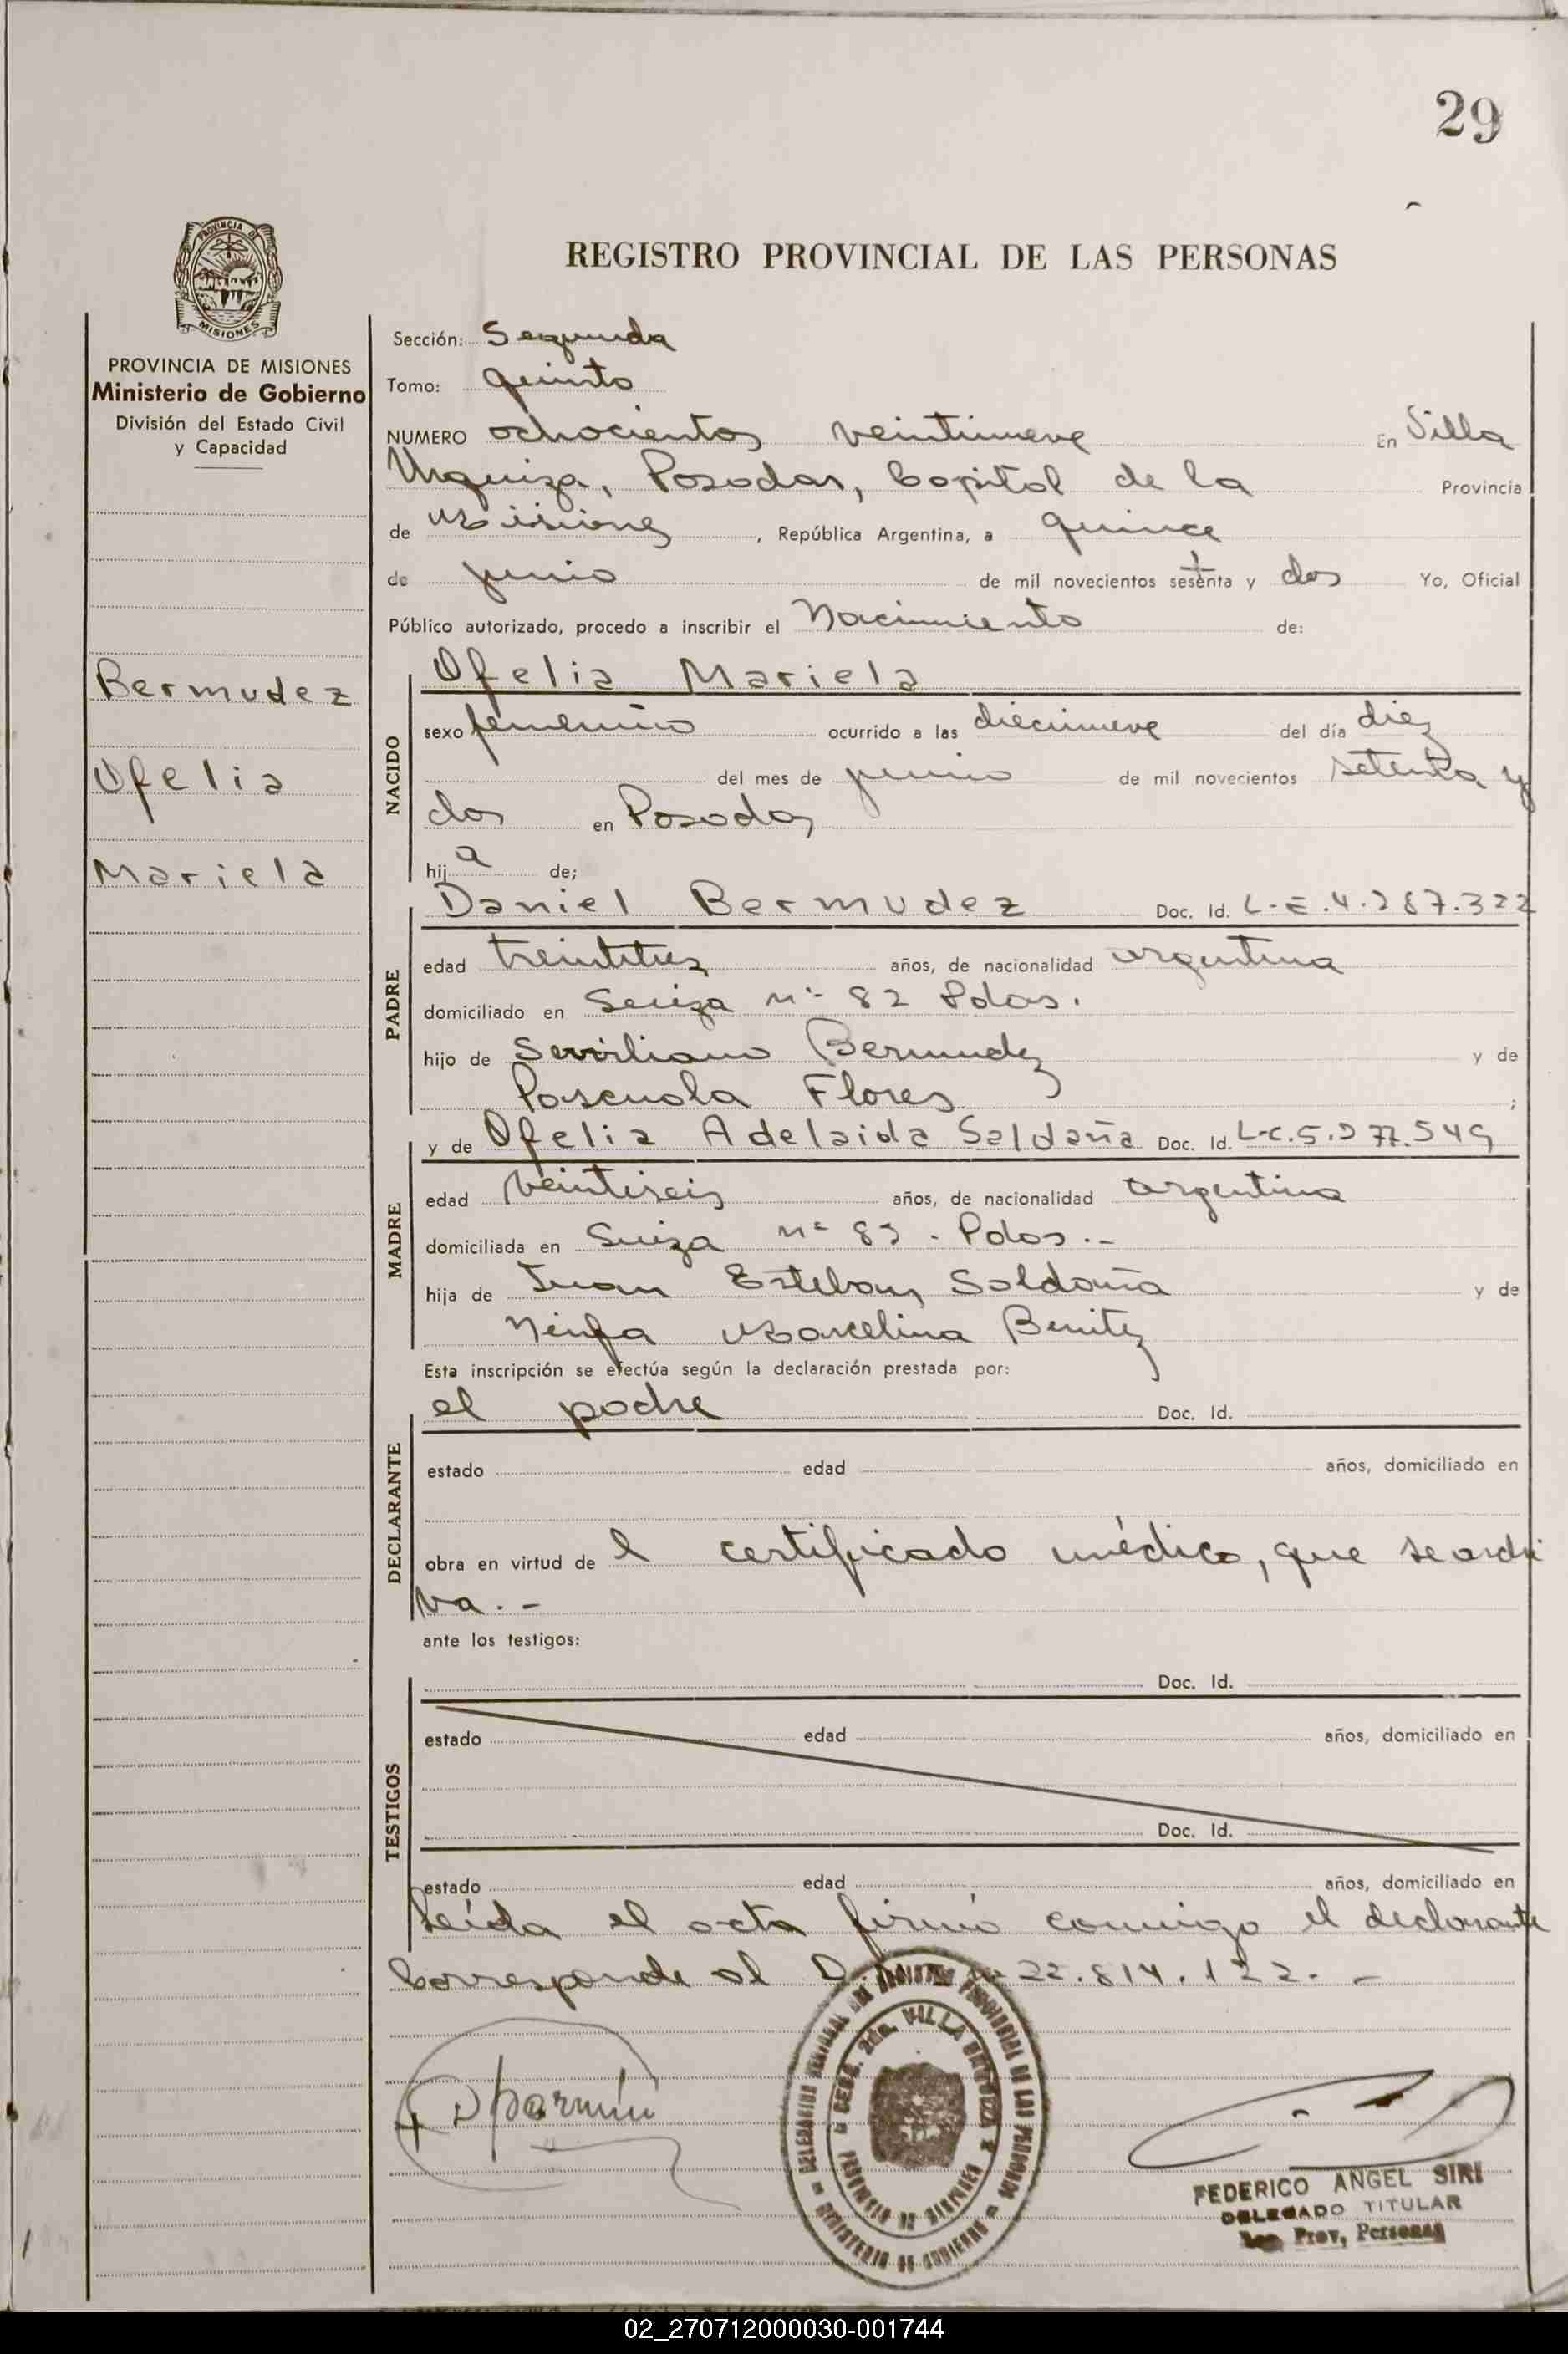 29
PROVINCIA DE
MISIONES
REGISTRO PROVINCIAL DE LAS PERSONAS
PROVINCIA DE MISIONES
Ministerio de Gobierno
División del Estado Civil
y Capacidad
Bermudez
Ofelia
Mariela
Sección: Segunda
Tomo: quinto
NUMERO ochocientos veintinueve En Villa
Urquiza, Posadas, Capital de la Provincia
de Misiones, República Argentina, a quince
de junio de mil novecientos setenta y dos Yo, Oficial
Público autorizado, procedo a inscribir el Nacimiento de:
NACIDO
Ofelia Mariela
sexo femenino ocurrido a las diecinueve del día diez
del mes de junio de mil novecientos setenta y
dos en Posadas
hija de;
PADRE
Daniel Bermudez Doc. Id. L.E. 4.287.322
edad treintitres años, de nacionalidad argentina
domiciliado en Suiza nº 82 Pdas.
hijo de Bermudez y de
Pascuala Flores ;
MADRE
y de Ofelia Adelaida Saldaña Doc. Id. L.C. 5.
edad veintiseis años, de nacionalidad argentina
domiciliada en Suiza nº Pdas.-
hija de Juan Esteban Saldaña y de
Ninfa Marcelina Benitez
Esta inscripción se efectúa según la declaración prestada por:
DECLARANTE
el padre Doc. Id.
estado edad años, domiciliado en
obra en virtud de l certificado médico, que se archi
va.-
ante los testigos:
TESTIGOS
Doc. Id.
estado edad años, domiciliado en
Doc. Id.
estado edad años, domiciliado en
Leída el acta firmó conmigo el declarante
Corresponde al 22.814.122.-
VILLA URQUIZA
PROVINCIA DE MISIONES
MINISTERIO DE GOBIERNO
FEDERICO ANGEL SIRI
DELEGADO TITULAR
Prov. Personas
02_270712000030-001744